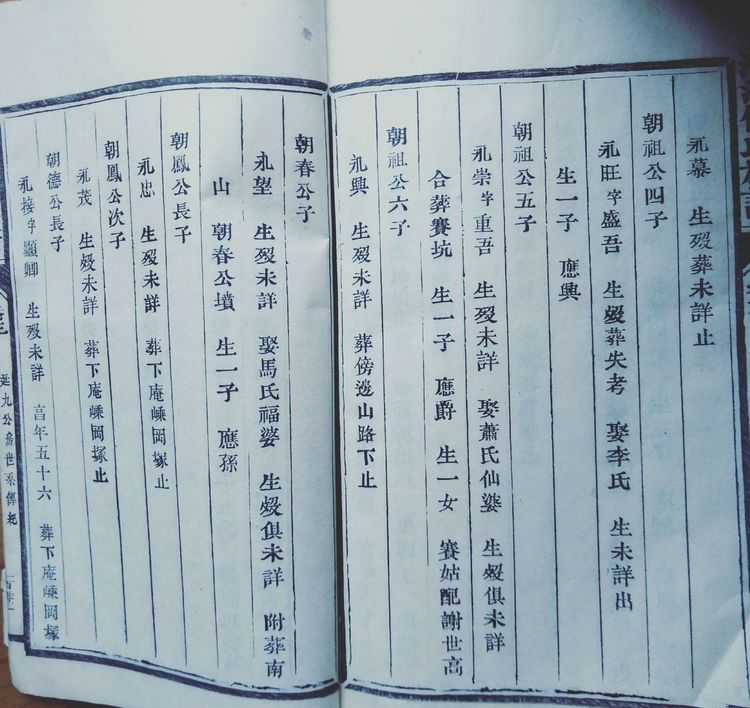 永慕 生歿葬未詳止
朝祖公四子
永旺字盛吾 生歿葬失考 娶李氏 生未詳出
生一子 應興
朝祖公五子
永崇字重吾 生歿未詳 娶蕭氏仙婆 生歿俱未詳
合葬賽坑 生一子 應爵 生一女 賽姑配謝世高
朝祖公六子
永興 生歿未詳 葬傍邊山路下止
朝春公子
永望 生歿未詳 娶馬氏福婆 生歿俱未詳 附葬南
山 朝春公墳 生一子 應孫
朝鳳公長子
永忠 生歿未詳 葬下庵嵊岡塚止
朝鳳公次子
永茂 生歿未詳 葬下庵嵊岡塚止
朝德公長子
永接字顯卿 生歿未詳 亯年五十六 葬下庵嵊岡塚
延九公房世系傳紀